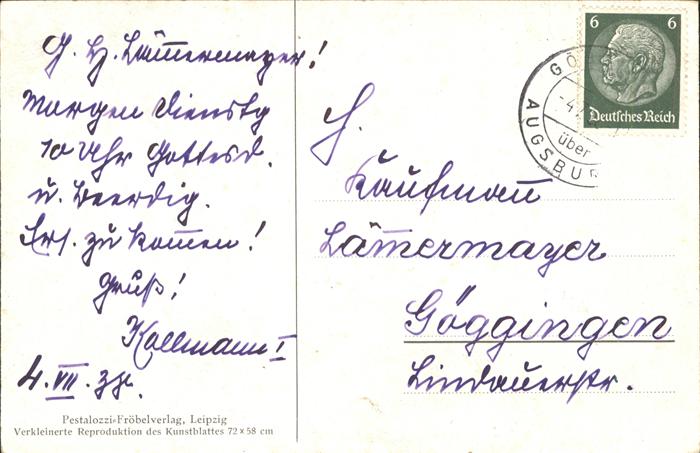 G. H. Lämmermayer!
Morgen Dienstg
10 Uhr Gottesd.
u. Beerdig.
Ers. zu kommen!
Gruß!
Kollmann I
4. VII. 38.
Pestalozzi-Fröbelverlag, Leipzig
Verkleinerte Reproduktion des Kunstblattes 72 x 58 cm
6 6
Deutsches Reich
GÖ
-4.
über
AUGSBUR
H.
Kaufmann
Lämmermayer
Göggingen
Lindauerstr.